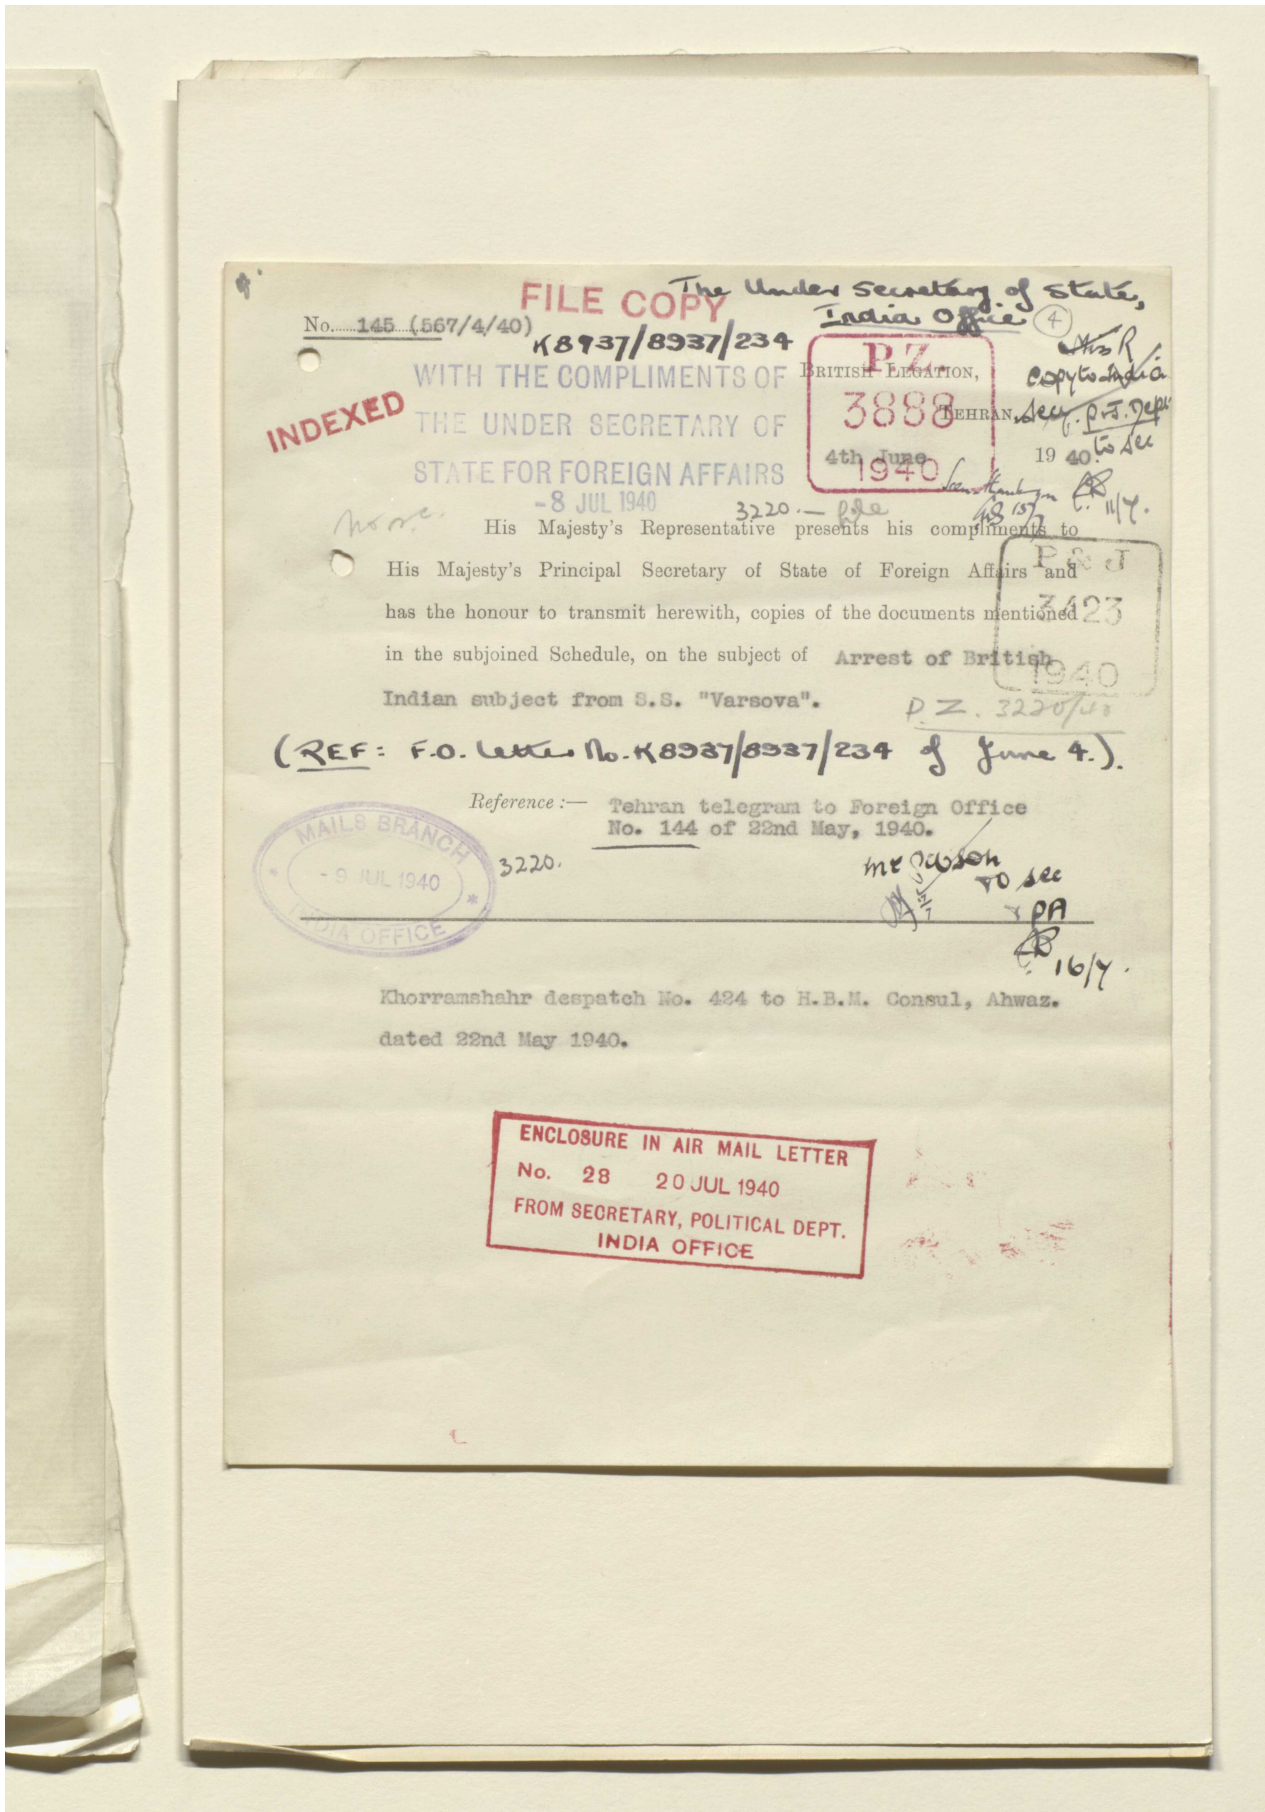 FILE COPY
The Under Secretary of State,
India Office
4
No. 145 (567/4/40)
K8937/8937/234
INDEXED
WITH THE COMPLIMENTS OF
THE UNDER SECRETARY OF
STATE FOR FOREIGN AFFAIRS
-8 JUL 1940
P.Z.
3888
1940
BRITISH LEGATION,
TEHRAN,
4th June 1940.
copy to India
Secy. P.J. Dept.
to see
11/7.
15/7
3220. — file
His Majesty's Representative presents his compliments to
His Majesty's Principal Secretary of State of Foreign Affairs and
has the honour to transmit herewith, copies of the documents mentioned
in the subjoined Schedule, on the subject of Arrest of British
Indian subject from S.S. "Varsova".
P & J
3423
1940
P.Z. 3220/40
(REF: F.O. letter No. K8937/8937/234 of June 4.).
Reference :— Tehran telegram to Foreign Office
No. 144 of 22nd May, 1940.
MAILS BRANCH
-9 JUL 1940
INDIA OFFICE
3220.
to see
PA
16/7.
Khorramshahr despatch No. 424 to H.B.M. Consul, Ahwaz.
dated 22nd May 1940.
ENCLOSURE IN AIR MAIL LETTER
No. 28 20 JUL 1940
FROM SECRETARY, POLITICAL DEPT.
INDIA OFFICE